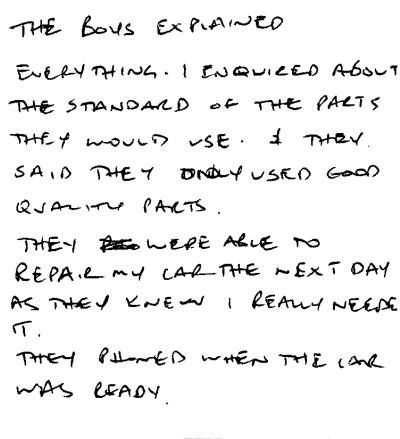 THE BOYS EXPLAINED
EVERYTHING. I ENQUIRED ABOUT
THE STANDARD OF THE PARTS
THEY WOULD USE. & THEY
SAID THEY ONLY USED GOOD
QUALITY PARTS.
THEY WERE ABLE TO
REPAIR MY CAR THE NEXT DAY
AS THEY KNEW I REALLY NEEDE
IT.
THEY PHONED WHEN THE CAR
WAS READY.